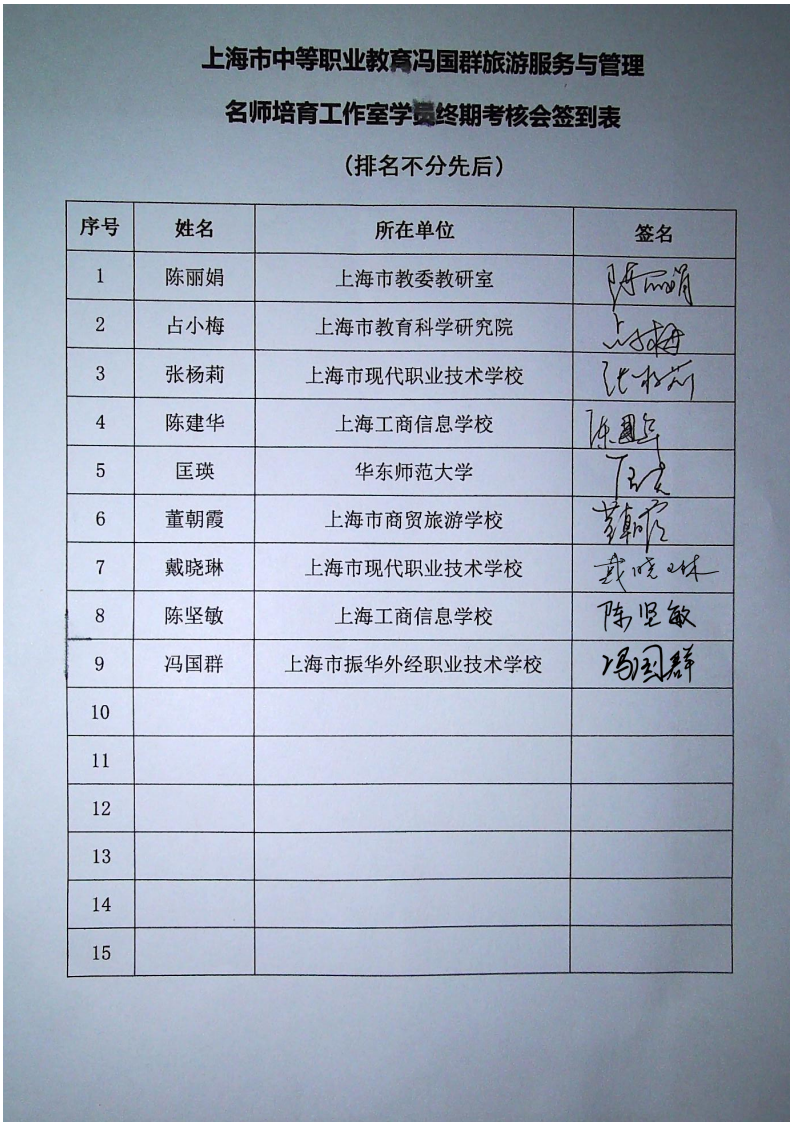 上海市中等职业教育冯国群旅游服务与管理
名师培育工作室学员终期考核会签到表
（排名不分先后）
序号 姓名 所在单位 签名
1 陈丽娟 上海市教委教研室 陈丽娟
2 占小梅 上海市教育科学研究院 占小梅
3 张杨莉 上海市现代职业技术学校 张杨莉
4 陈建华 上海工商信息学校
5 匡瑛 华东师范大学 匡瑛
6 董朝霞 上海市商贸旅游学校 董朝霞
7 戴晓琳 上海市现代职业技术学校 戴晓琳
8 陈坚敏 上海工商信息学校 陈坚敏
9 冯国群 上海市振华外经职业技术学校 冯国群
10
11
12
13
14
15